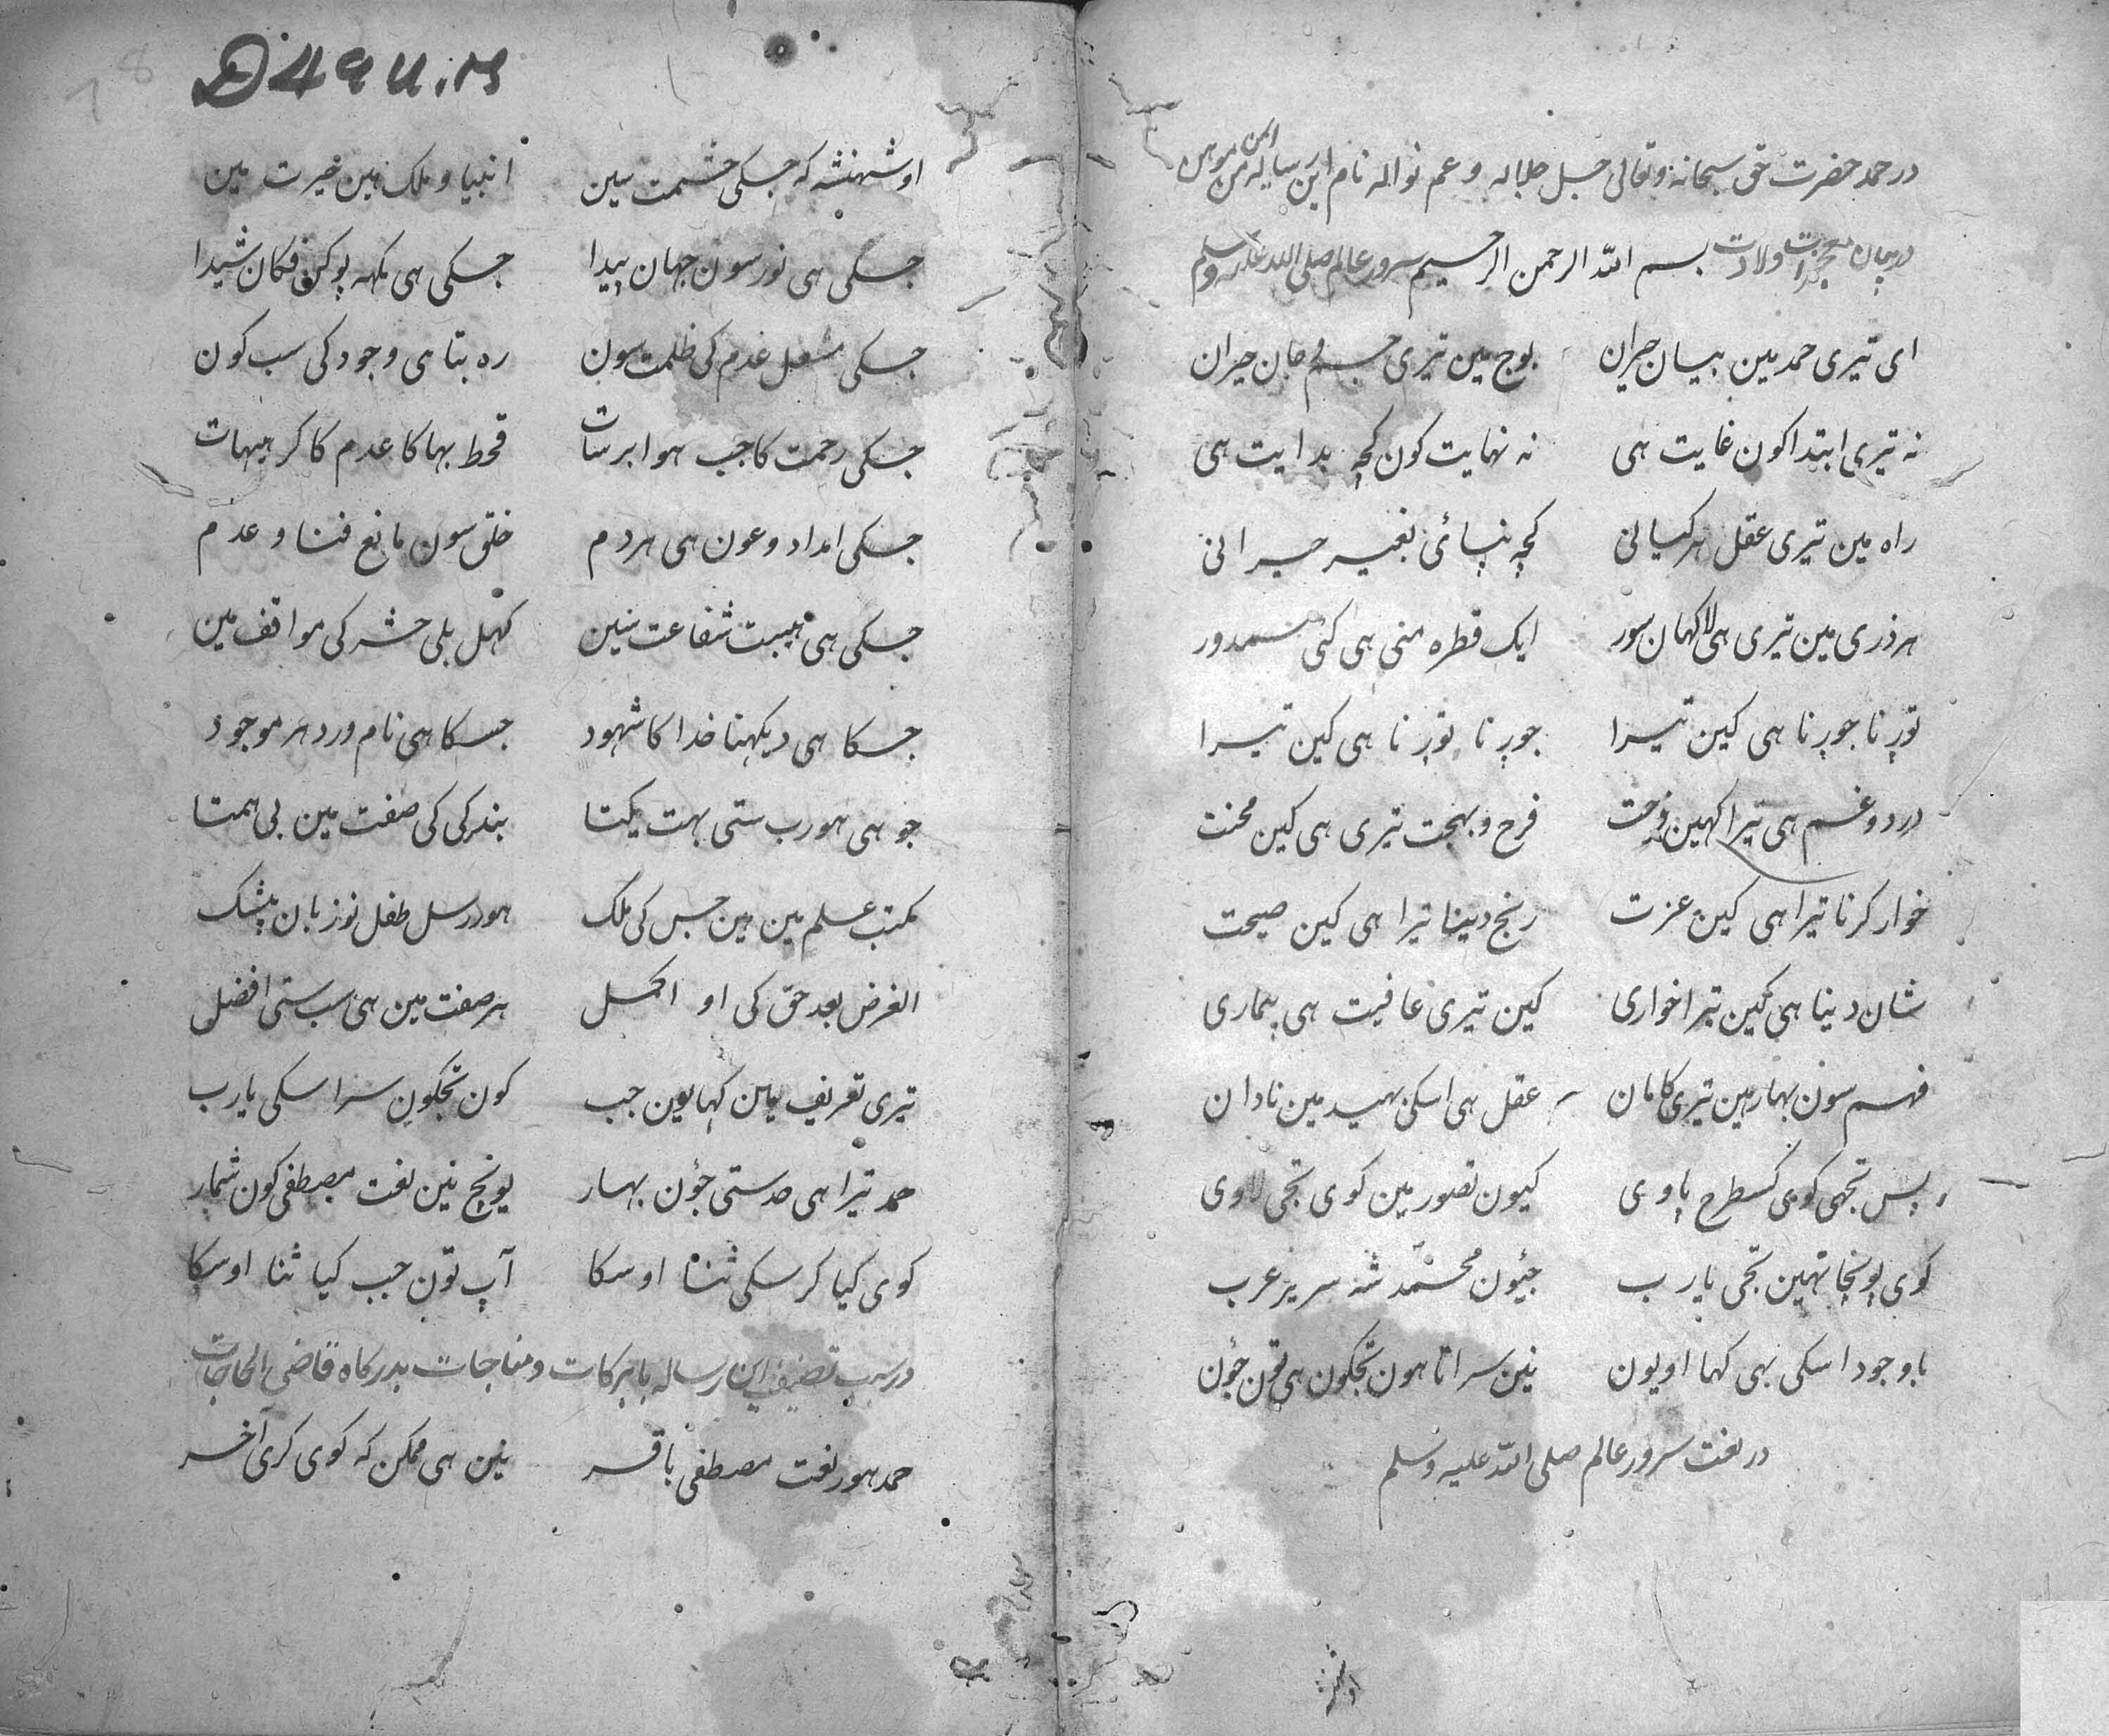 در حمد حضرت حق سبحانه وتعالی جل جلاله و عم نواله نام این رساله من موهن
در بیان معجزات ولادت بسم الله الرحمن الرحیم سرور عالم صلی الله علیه وسلم
ای تیری حمد مین بیان حیران بوج مین تیری جسم و جان حیران
نه تیری ابتدا کون غایت هی نه نهایت کون کچه بدایت هی
راه مین تیری عقل هر کیانی کچه نپائی بغیر حیرانی
هر ذری مین تیری هی لاکهان سور ایک قطره منی هی کئی سمدور
تورنا جورنا هی کین تیرا جورنا تورنا هی کین تیرا
درد و غم هی تیرا کهین فرحت فرح و بهجت تیری هی کین محنت
خوار کرنا تیرا هی کین عزت رنج دینا تیرا هی کین صحت
شان دینا هی کین تیرا خواری کین تیری عافیت هی بیماری
فهم سون بهار هین تیری کامان عقل هی اسکی بهید مین نادان
پس تجهی کوی کسطرح پاوی کیون تصور مین کوی تجی لاوی
کوی پونچا نهین تجی یارب جیون محمد شه سریر عرب
باوجود اسکی بهی کها او یون نین سراتا هون تجکون هی تون جون
در نعت سرور عالم صلی الله علیه وسلم
او شهنشه
D49 U.M
8
او شهنشه که جسکی حشمت سین انبیا و ملک هین غیرت مین
جسکی هی نور سون جهان پیدا جسکی هی مکهه پو کن فکان شیدا
جسکی مشعل عدم کی ظلمت سون ره بتا هی وجود کی سب کون
جسکی رحمت کا جب هوا برسات قحط بها کا عدم کا کر هیهات
جسکی امداد و عون هی هردم خلق سون مانع فنا و عدم
جسکی هی هیبت شفاعت سین کهل بلی حشر کی مواقف مین
جسکا هی دیکهنا خدا کا شهود جسکا هی نام ورد هر موجود
جو هی هور رب ستی بهت یکتا بندکی کی صفت مین بی همتا
مکتب علم مین هین جس کی ملک هور رسل طفل نو زبان بیشک
الغرض بعد حق کی او اکمل هر صفت مین هی سب ستی افضل
تیری تعریف مین کها یون جب کون تجکون سرا سکی یارب
حمد تیرا هی حد ستی جون بهار یونچ نین نعت مصطفی کون شمار
کوی کیا کر سکی ثنا اوسکا آپ تون جب کیا ثنا اوسکا
در سبب تصنیف این رساله بابرکات و مناجات بدرکاه قاضی الحاجات
حمد هور نعت مصطفی باقر نین هی ممکن که کوی کری آخر